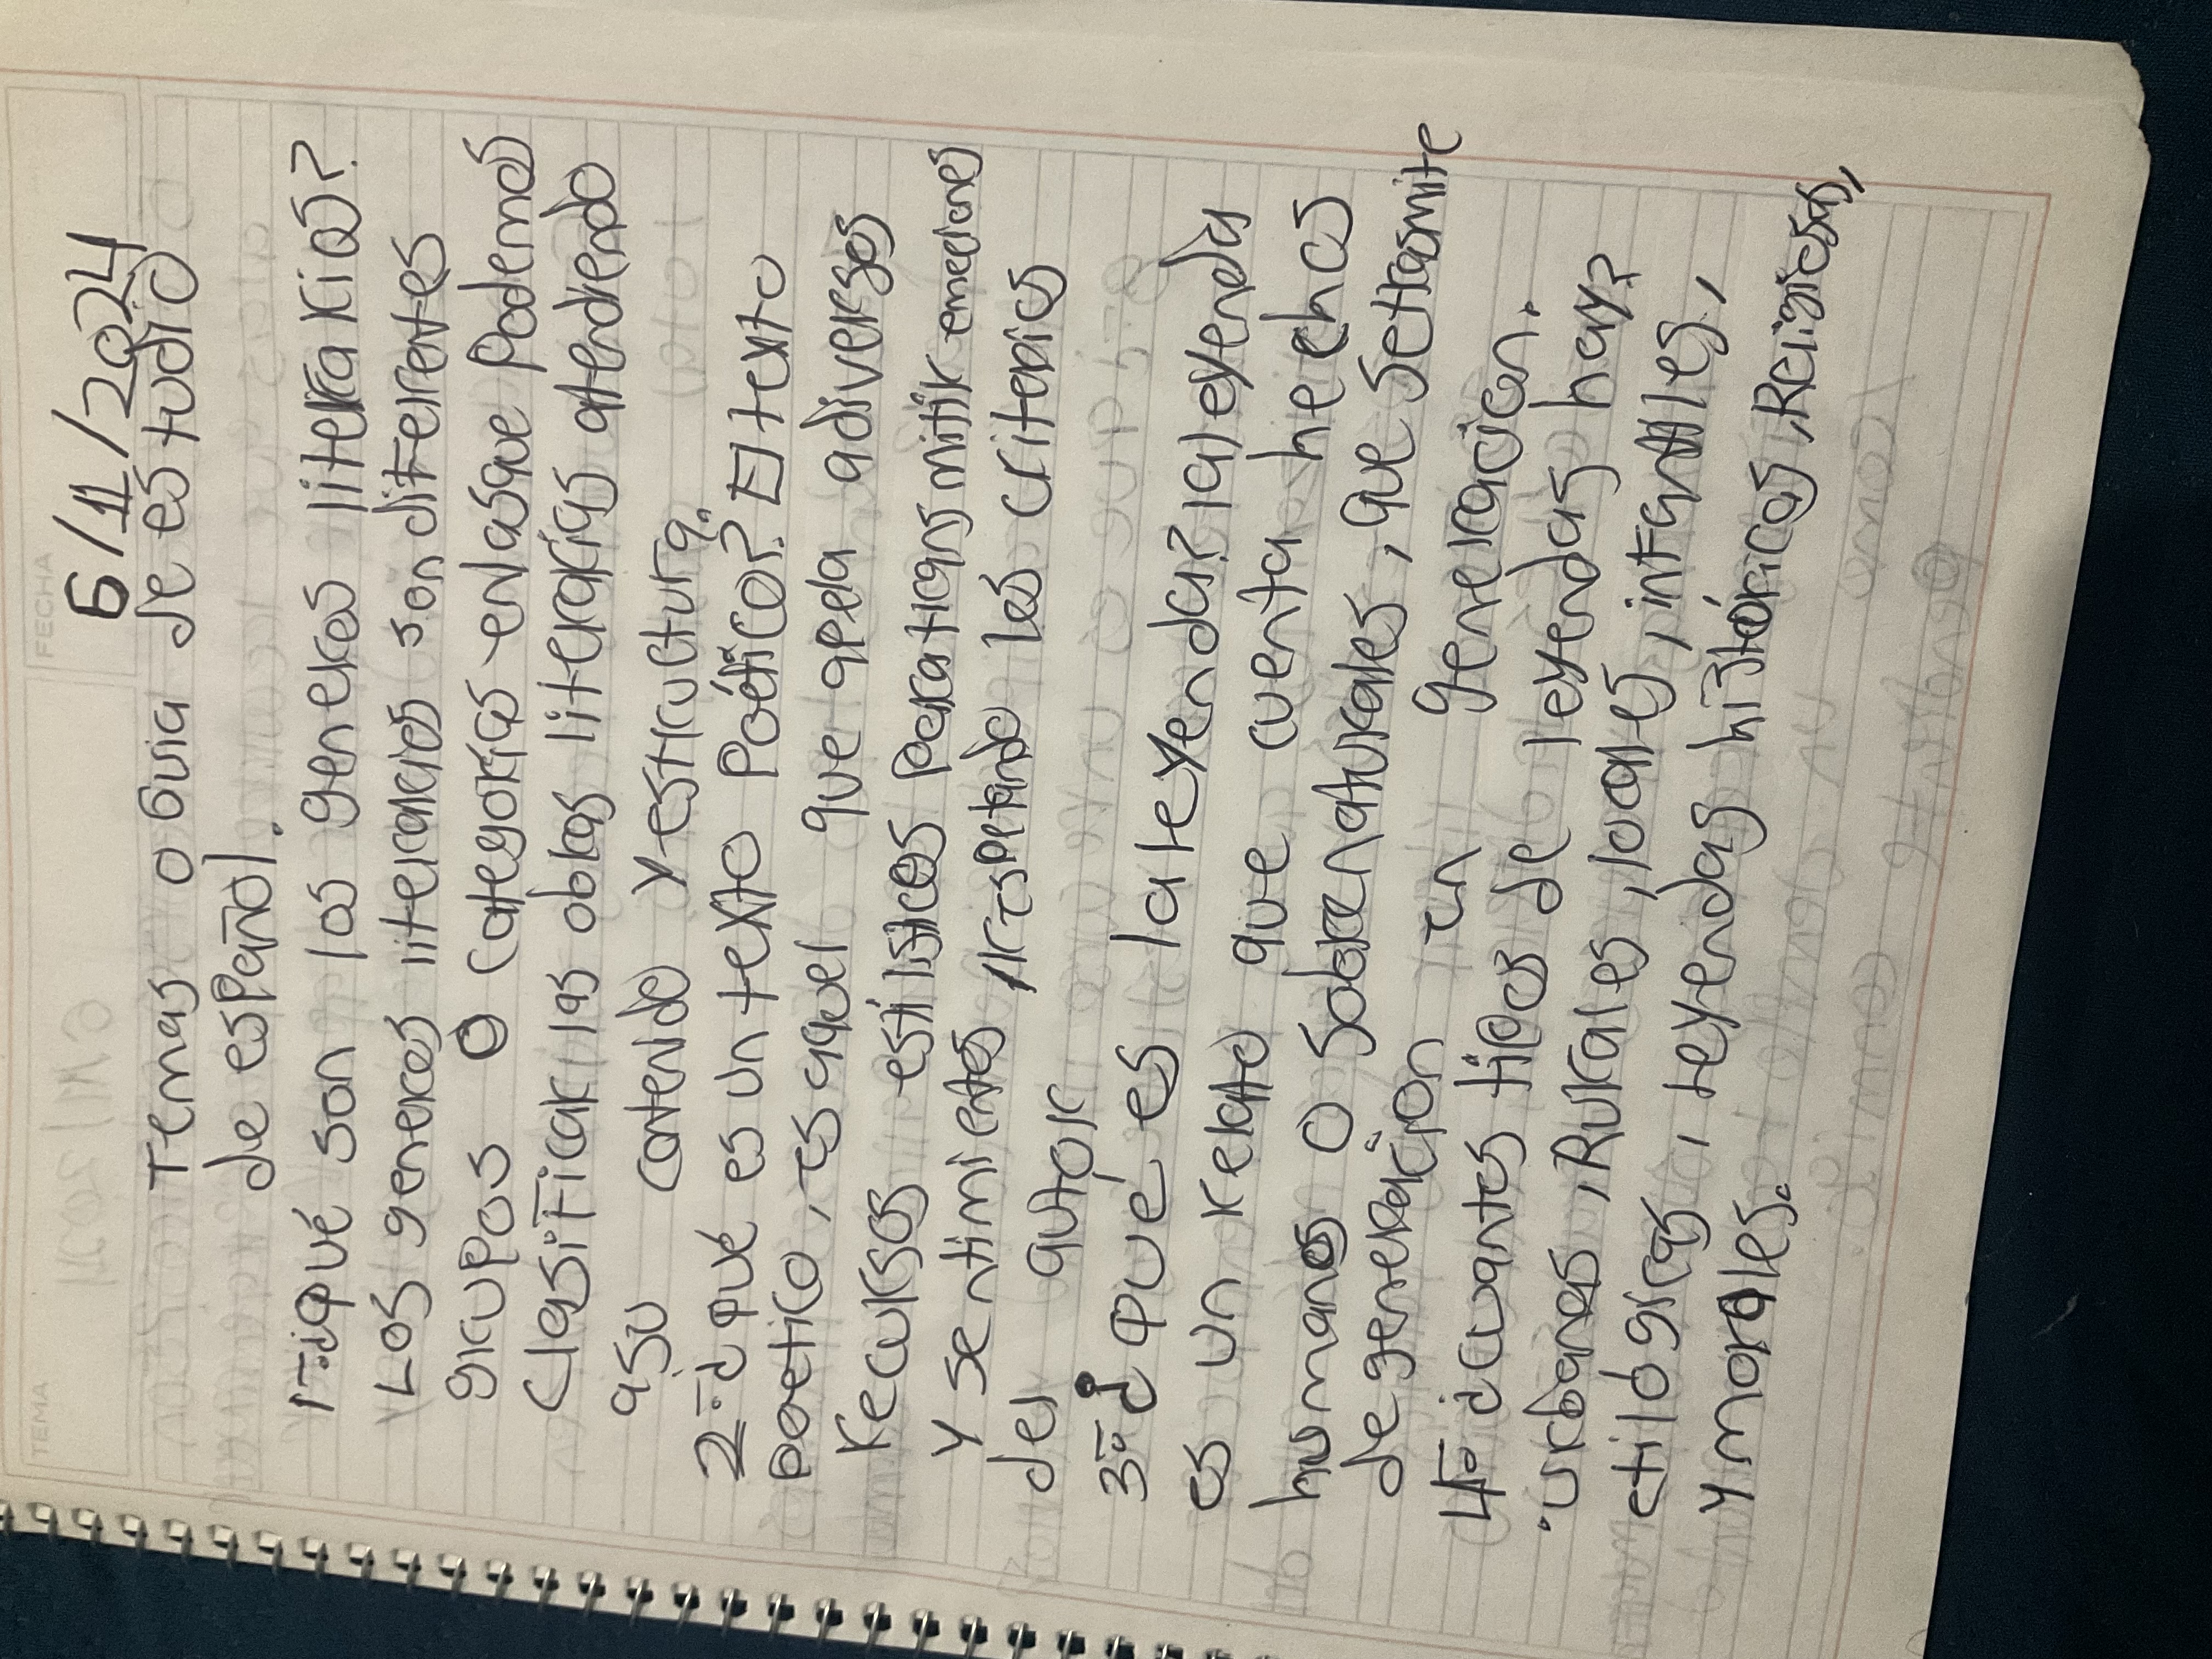 FECHA
6/11/2024
TEMA
Temas o Guia de estudio
de español.
1-¿qué son los generos literarios?
Los generos literarios son diferentes
grupos o categorías en las que podemos
clasificar las obras literarias atendiendo
a su contenido y estructura.
2-¿qué es un texto poético? El texto
poetico, es aquel que apela a diversos
recursos estilísticos para transmitir emociones
y sentimientos, respetando los criterios
del autor
3-¿qué es la leyenda? la leyenda
es un relato que cuenta hechos
humanos o sobrenaturales, que se trasmite
de generación en generación.
4-¿cuantos tipos de leyendas hay?
urbanas, Rurales, locales, infantiles,
etilogicas, leyendas históricas, Religiosas,
y morales.